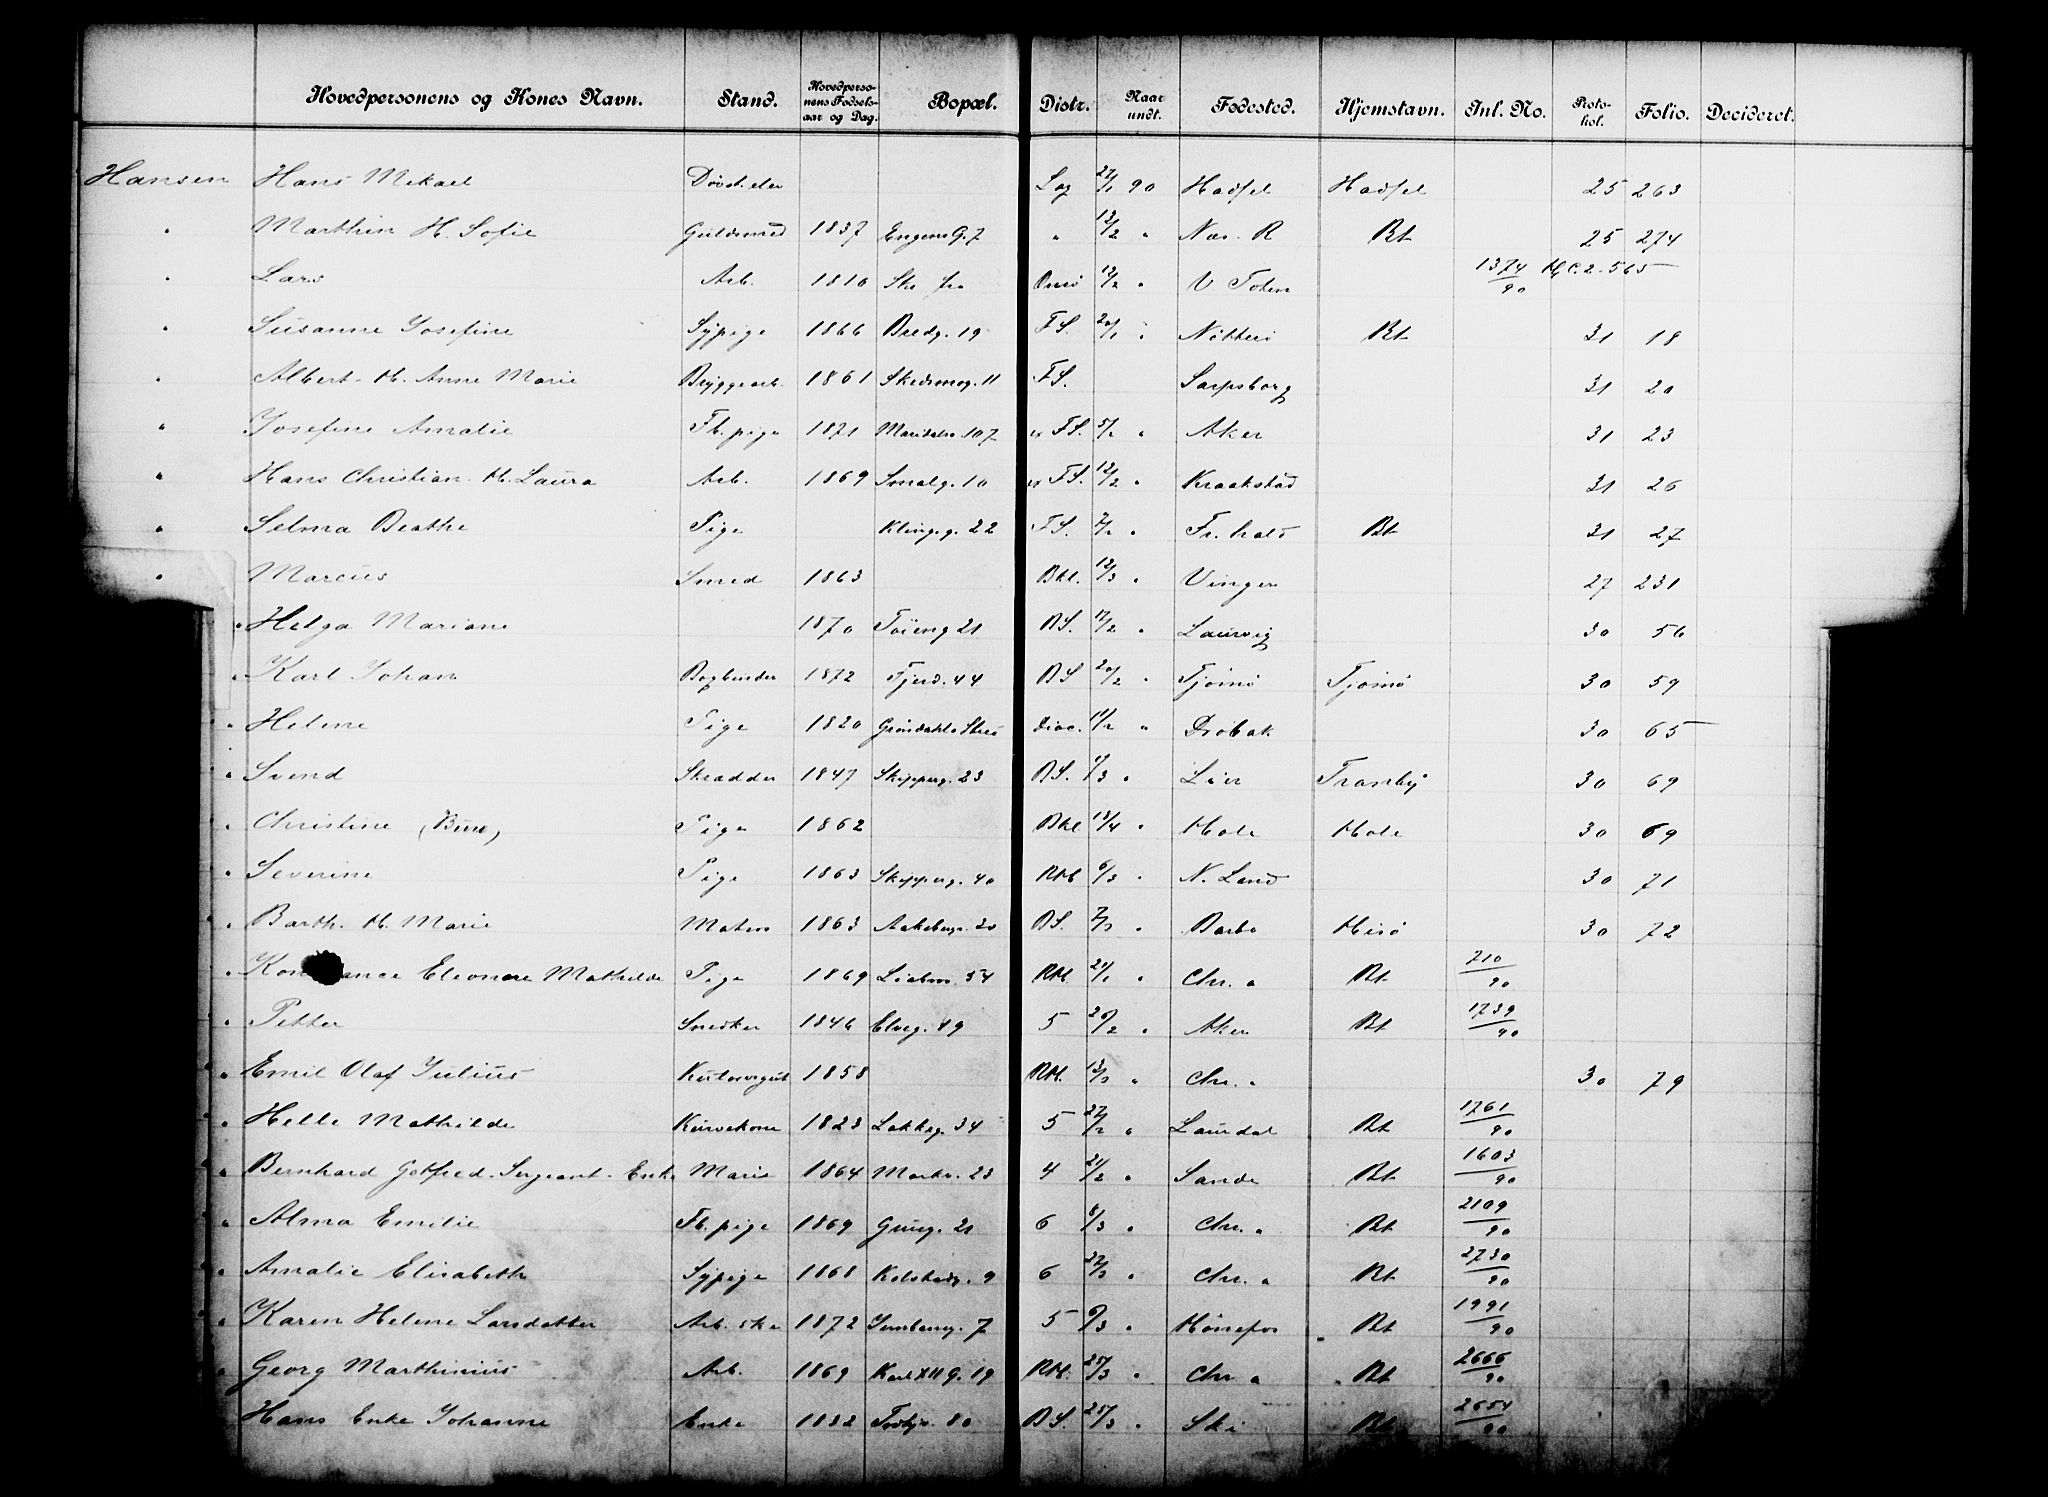 Hovedpersonens og Kones Navn. Stand. Hovedpersonens Fødselsaar og Dag. Bopæl. Distr. Naar undt. Fødested. Hjemstavn. Inl. No. Protokol. Folio. Decideret.
Hansen Hans Mikael 90 Hadsel Hadsel 25 263
" Marthin H. Sofie Guldsmed 1837 Engens G. 7 " 12/2 " Næs. R Bt 25 274
" Lars Arb. 1810 12/2 " V Toten 1374/90 H.C.2-565
" Susanne Josefine Sypige 1866 Bredg. 19 F.S. 20/1 " Nøtterø Bt 31 18
" Albert - H. Anne Marie Bryggearb. 1861 Skedsmog. 11 F.S. Sarpsborg 31 20
" Josefine Amalie Fb. pige 1871 Maridalsv. 107 F.S. 5/2 " Aker 31 23
" Hans Christian - H. Laura Arb. 1869 Smalg. 10 F.S. 12/2 " Kraakstad 31 26
" Selma Beathe Pige Klingg. 22 F.S. 7/2 " Fr.hald Bt 31 27
" Marcus Smed 1863 Bkl. 12/3 " Vinger 27 231
" Helga Mariane 1870 Tøieng 21 B.S. 17/2 " Laurvig 30 56
" Karl Johan Bogbinder 1872 Fjerd. 44 B.S 20/2 " Tjømø Tjømø 30 59
" Helene Pige 1820 Diac. 11/2 " Drøbak 30 65
" Svend Skrædder 1847 Skipperg. 23 B.S. " Lier Tranby 30 69
" Christine Pige 1862 Bkl 13/4 " Hole Hole 30 69
" Severine Pige 1863 Skipperg. 40 RH 6/3 " N. Land 30 71
" Barth. H. Marie Matros 1863 Aakebergv. 20 B.S. 7/3 " Barbo Hisø 30 72
" Kon ance Eleonore Mathilde Pige 1869 54 RH. 21/1 " Chr.a Bt 710/90
" Petter Snedker 1846 Elveg. 49 5 26/2 " Aker Bt 1739/90
" Emil Olaf Julius 1858 RH. 13/3 " Chr.a 30 79
" Helle Mathilde Kurvekone 1823 Lakkeg. 34 5 27/2 " Laurdal Bt 1761/90
" Bernhard Gotfred - Sergeant - Enke Marie 1864 Markv. 23 4 21/2 " Sande Bt 1603/90
" Alma Emilie Fb. pige 1869 Grüng. 21 6 8/3 " Chr.a Bt 2109/90
" Amalie Elisabeth Sypige 1868 Kolstadg. 9 6 27/3 " Chr.a Bt 2730/90
" Karen Helene Larsdatter Arb. ske 1872 7 5 6/3 " Hønefos Bt 1991/90
" Georg Marthinius Arb. 1869 Karl XII G. 19 RH. 25/3 " Chr.a Bt 2666/90
Hans Enke Johanne Enke 1832 80 B.S. 25/3 " Ski Bt 2654/90